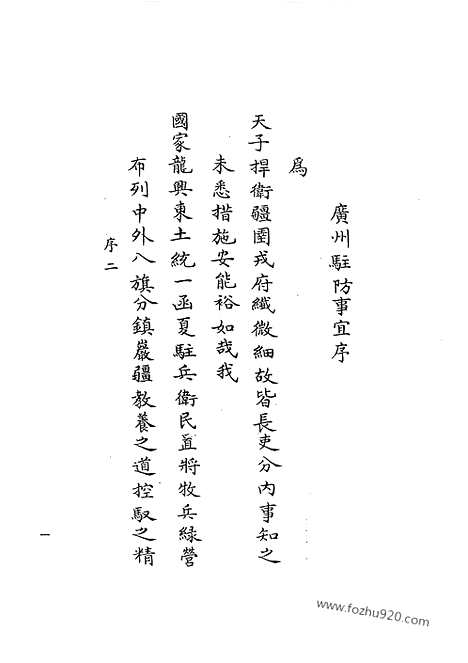 廣州駐防事宜序
爲
天子捍衛疆圉戎府纖微細故皆長吏分内事知之
未悉措施安能裕如哉我
國家龍興東土統一函夏駐兵衛民置將牧兵綠營
布列中外八旗分鎮嚴疆教養之道控馭之精
序二
一
www.fozhu920.com